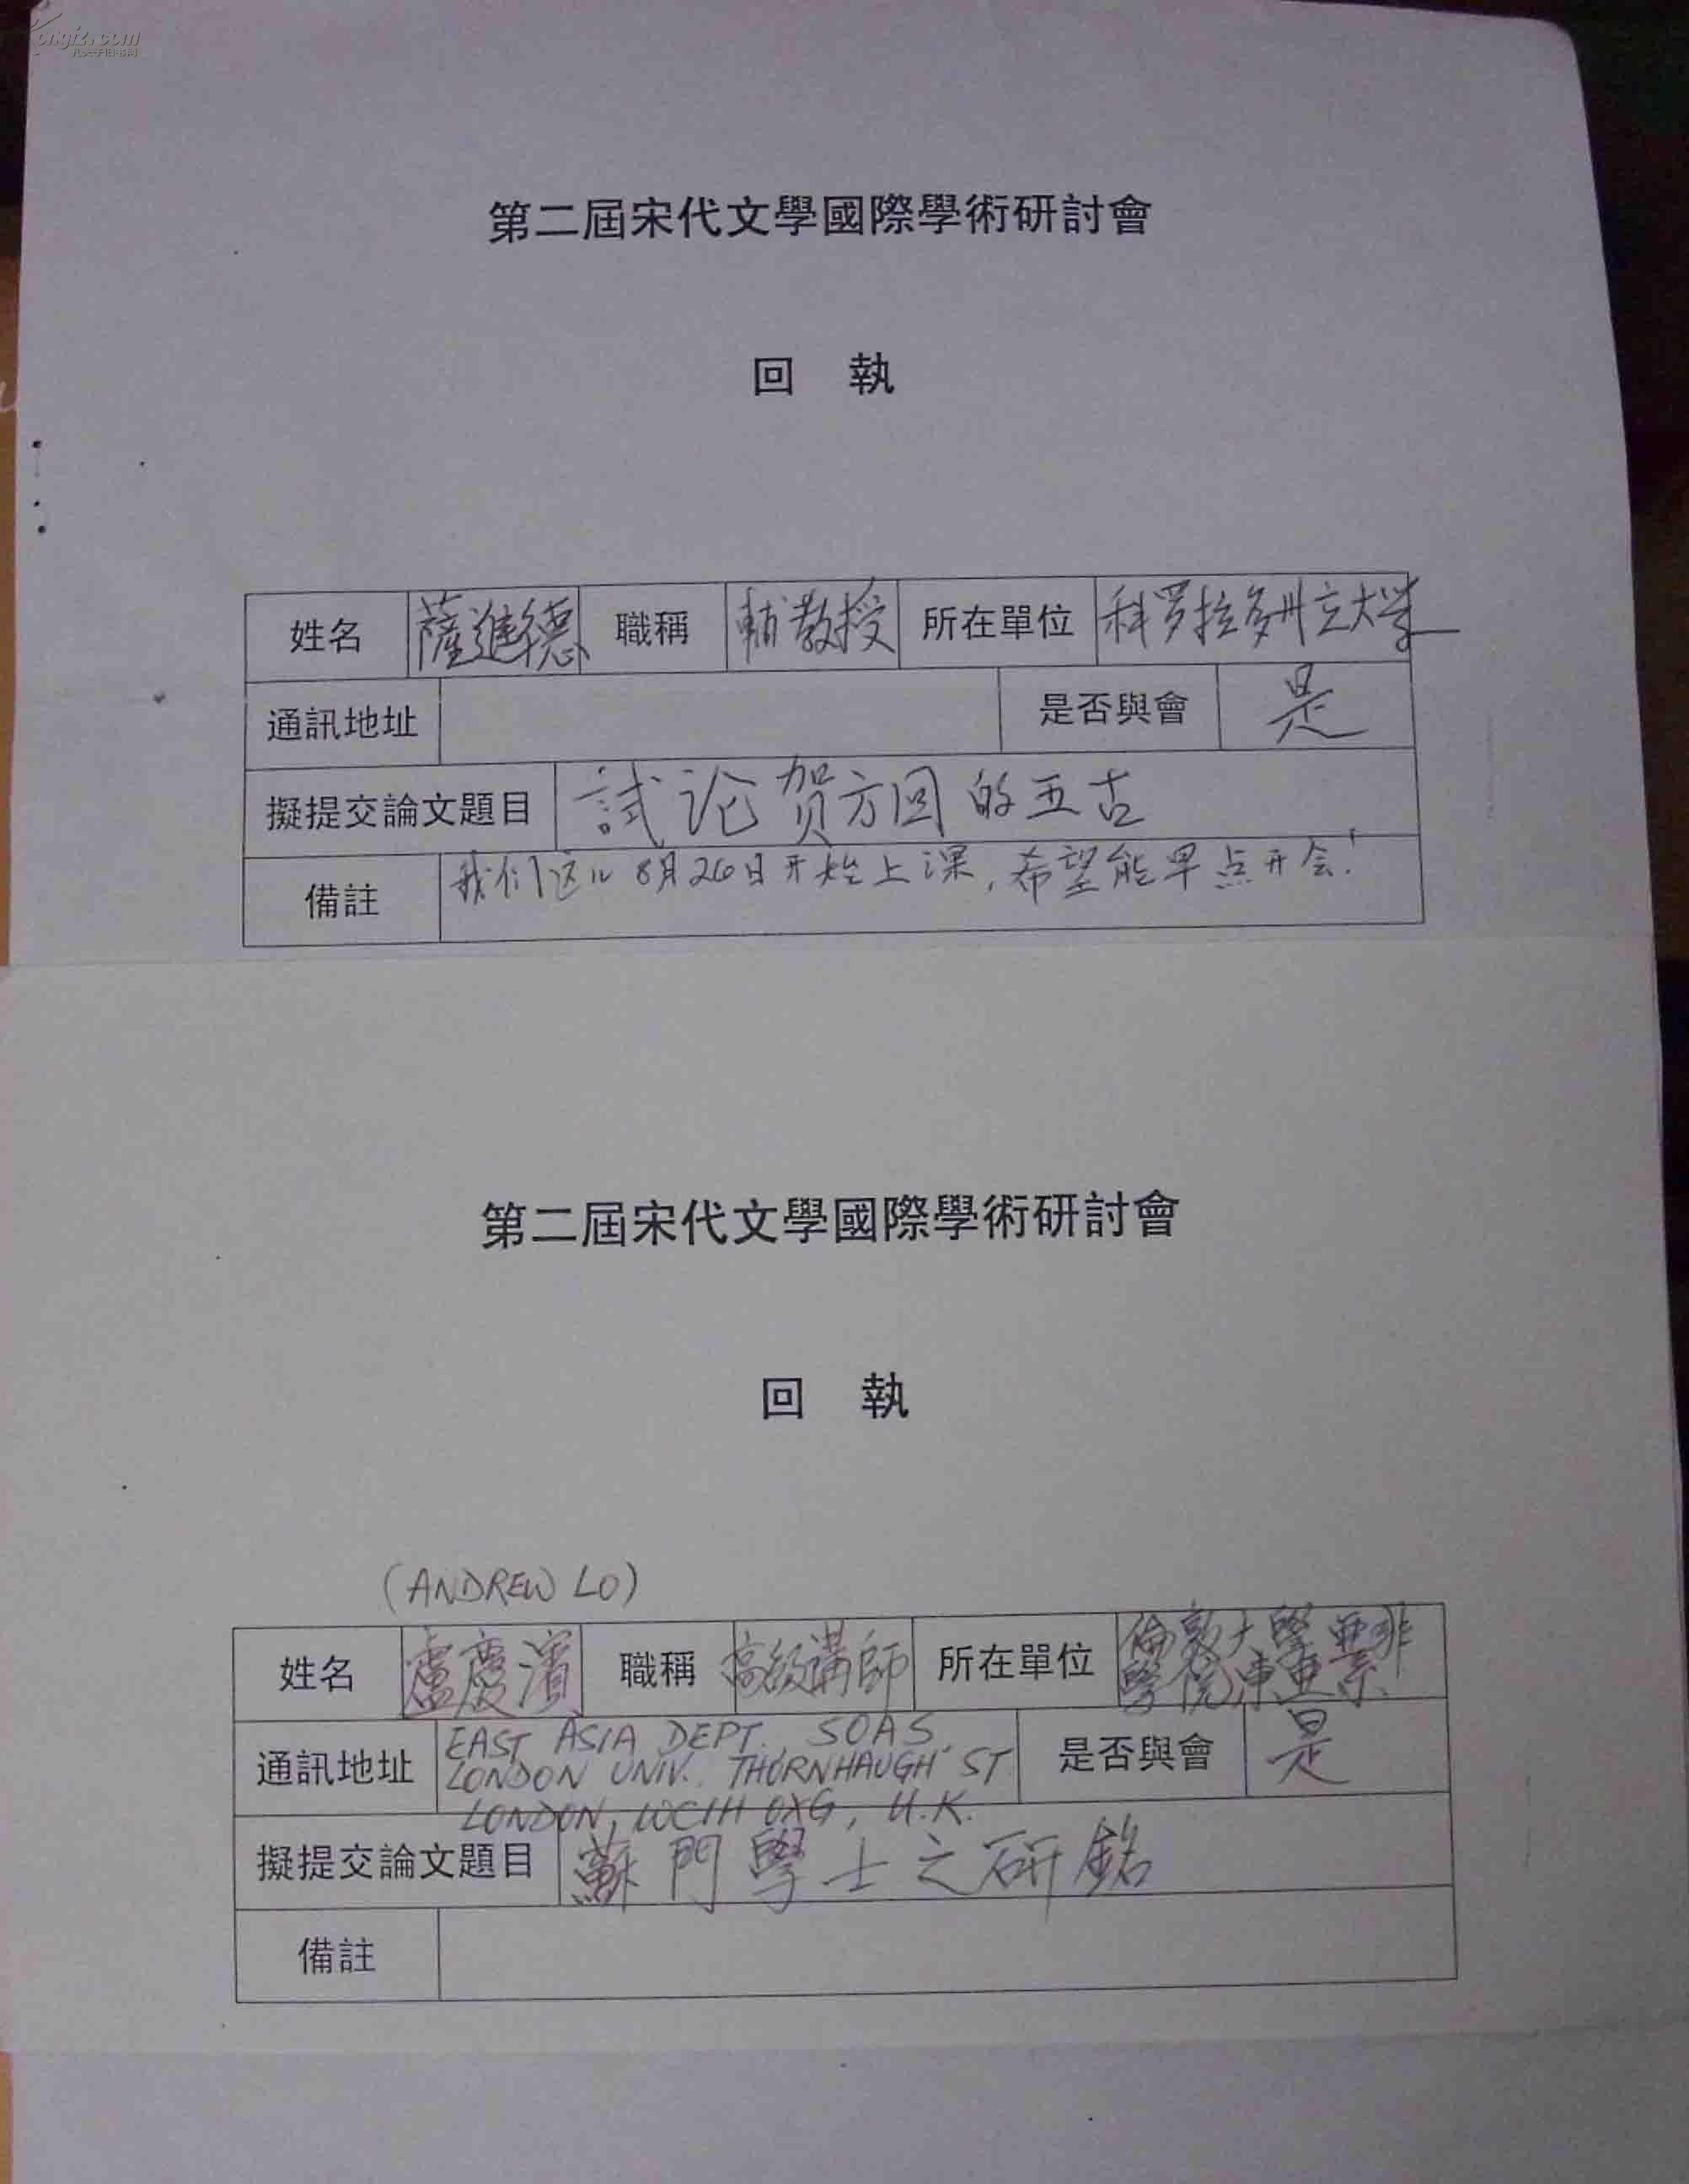 第二屆宋代文學國際學術研討會
回 執
姓名 薩進德 職稱 輔教授 所在單位 科罗拉多州立大学
通訊地址 是否與會 是
擬提交論文題目 試论贺方回的五古
備註 我们这儿8月26日开始上课,希望能早点开会!
第二屆宋代文學國際學術研討會
回 執
(ANDREW LO)
姓名 盧慶濱 職稱 高級講師 所在單位 倫敦大學亞非
學院東亞系
通訊地址 EAST ASIA DEPT., SOAS, 是否與會 是
LONDON UNIV. THORNHAUGH ST
LONDON, WC1H OXG, U.K.
擬提交論文題目 蘇門學士之研銘
備註